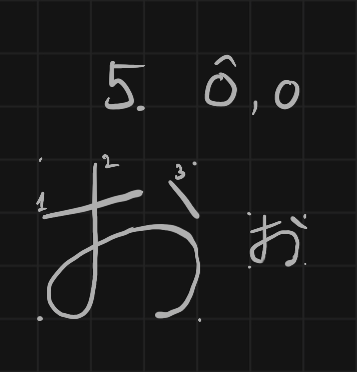 5. ô, o
1 2 3
お お